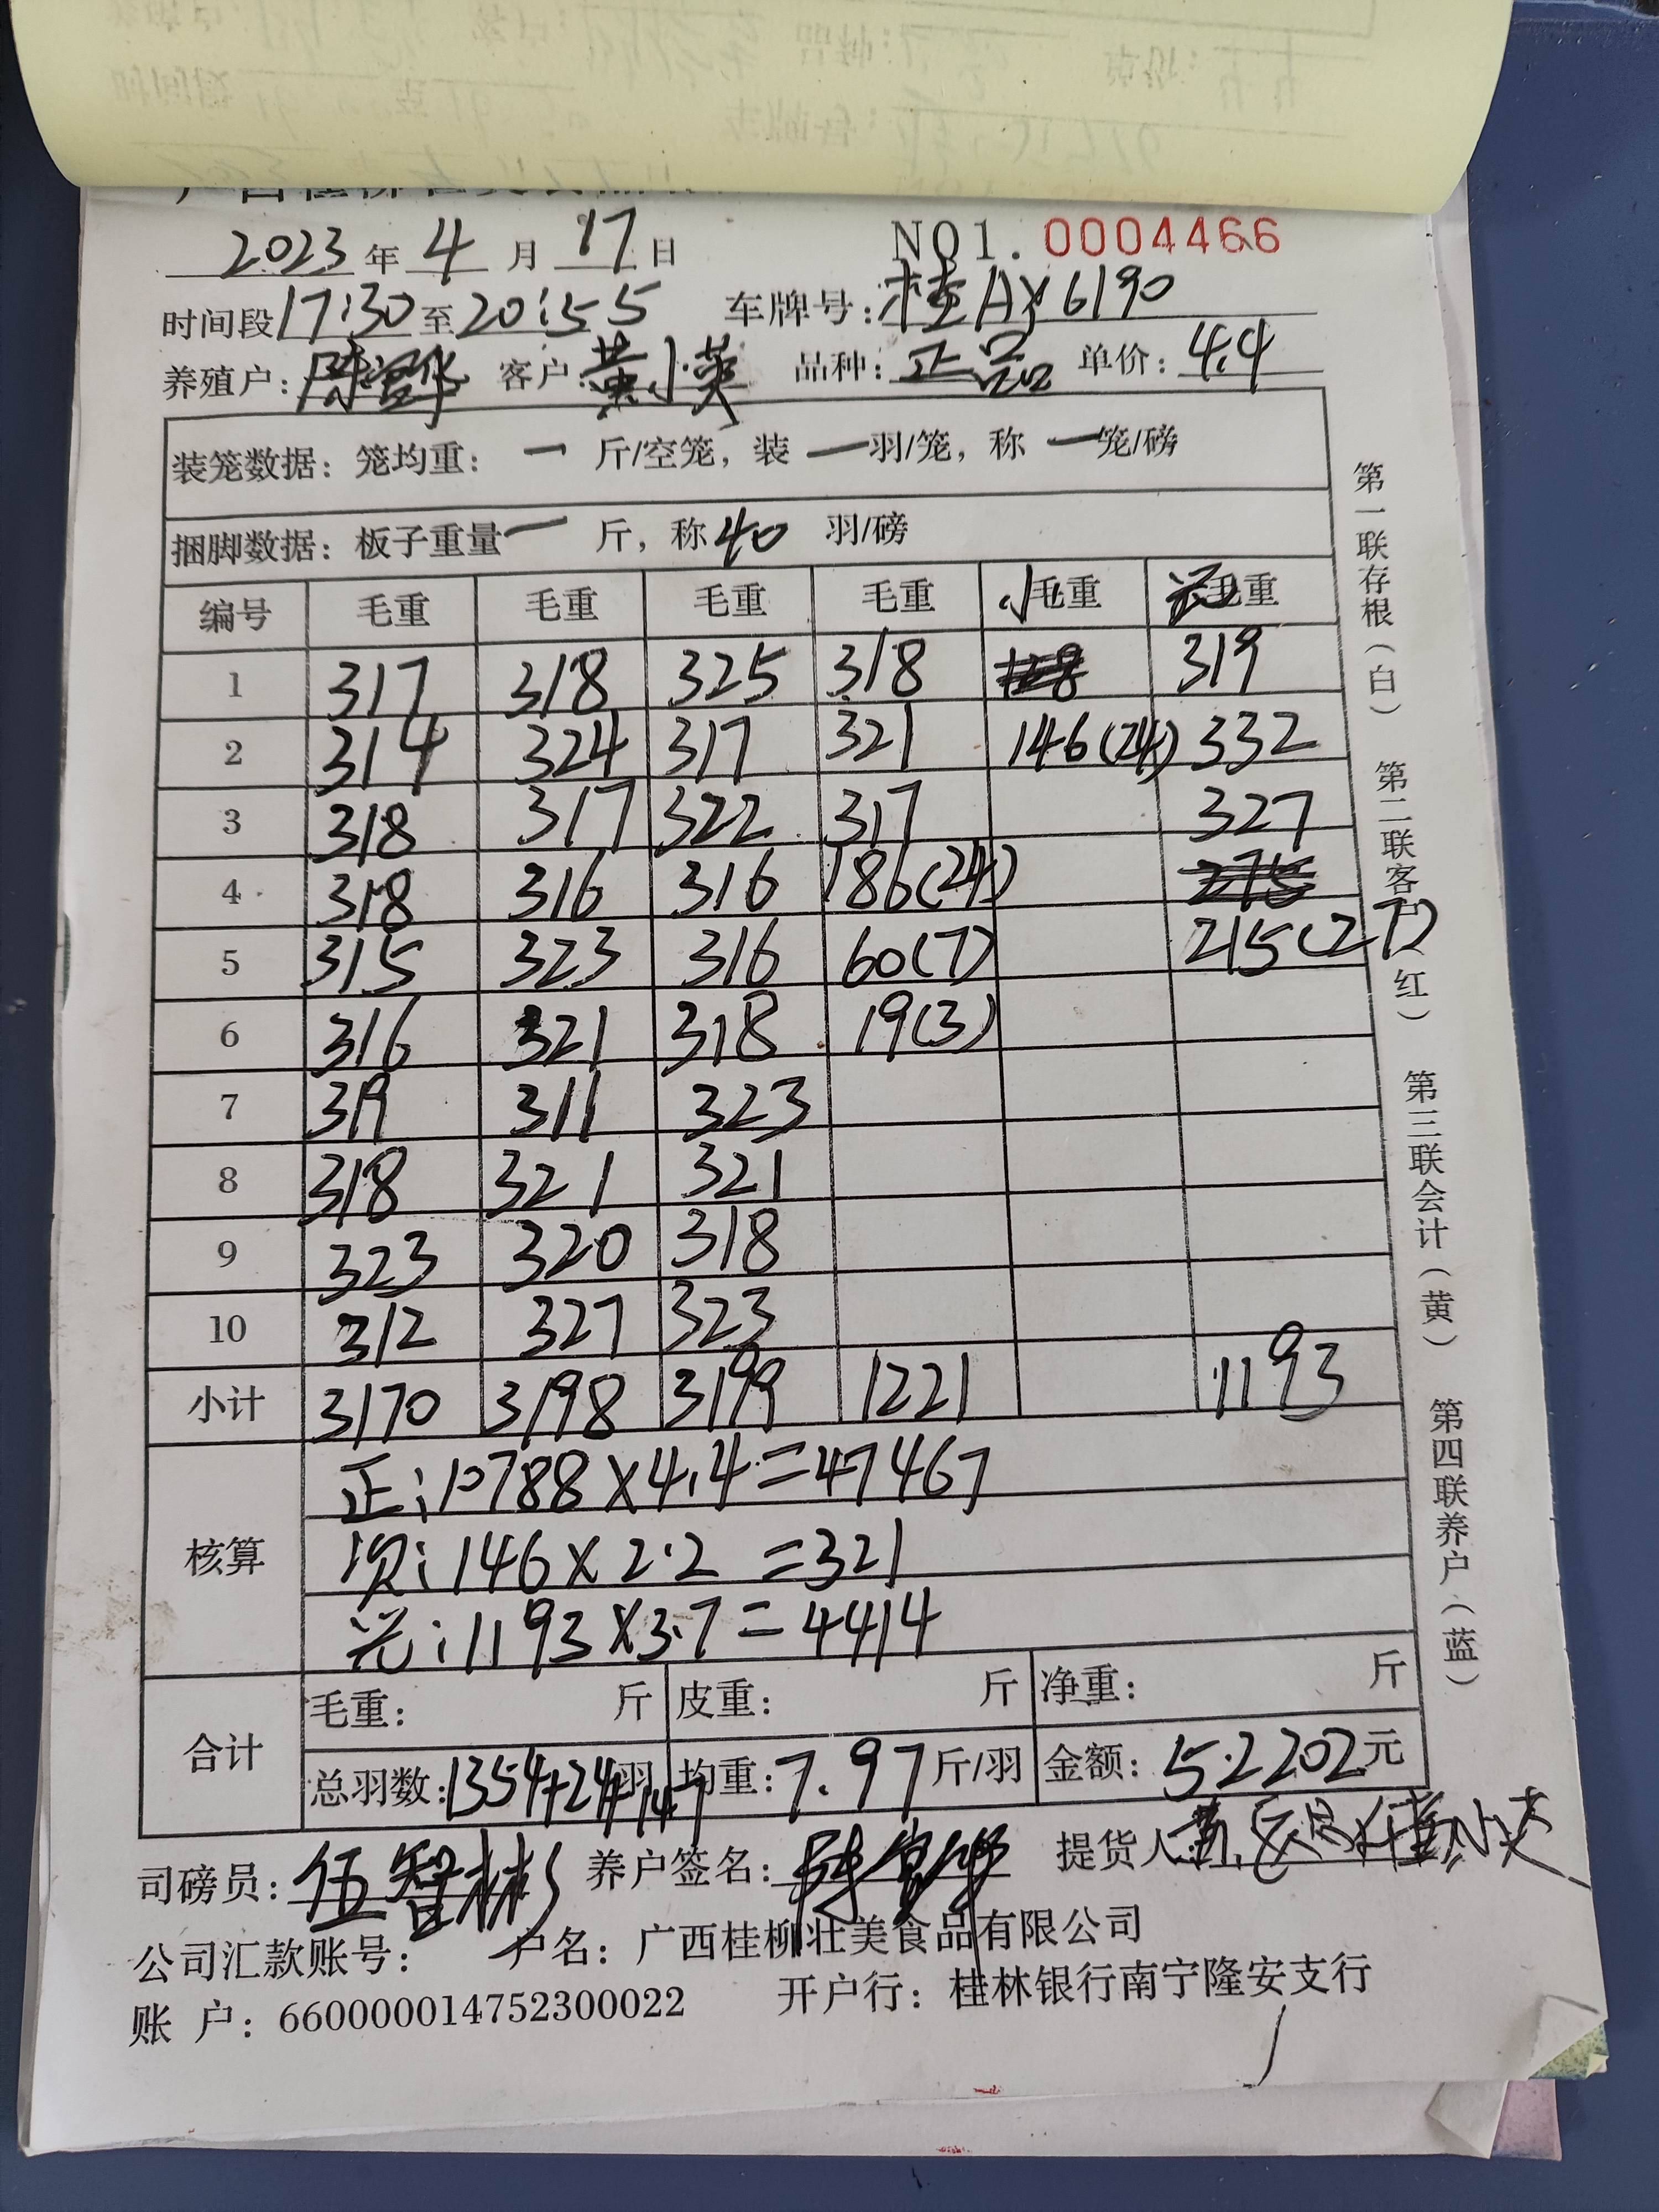 2023年4月17日 NO1. 0004466
时间段17:30至20:55 车牌号:桂AX6190
养殖户: 客户:黄小英 品种:正品 单价:4.4
装笼数据: 笼均重: 一 斤/空笼, 装 一羽/笼, 称 一笼/磅
捆脚数据: 板子重量一 斤, 称40 羽/磅
编号 毛重 毛重 毛重 毛重 小毛重 毛重
1 317 318 325 318 319
2 314 324 317 321 146(24) 332
3 318 317 322 317 327
4 318 316 316 186(24)
5 315 323 316 60(7) 215(27)
6 316 321 318 19(3)
7 319 311 323
8 318 321 321
9 323 320 318
10 312 327 323
小计 3170 3198 3199 1221 1193
核算
正:10788×4.4=47467
次:146×2.2=321
光:1193×3.7=4414
合计
毛重: 斤 皮重: 斤 净重: 斤
总羽数:1354+24+147羽 均重:7.97斤/羽 金额:52202元
司磅员:伍智彬 养户签名: 提货人:
公司汇款账号: 户名: 广西桂柳壮美食品有限公司
账 户: 660000014752300022 开户行: 桂林银行南宁隆安支行
第一联存根(白)
第二联客户(红)
第三联会计(黄)
第四联养户(蓝)